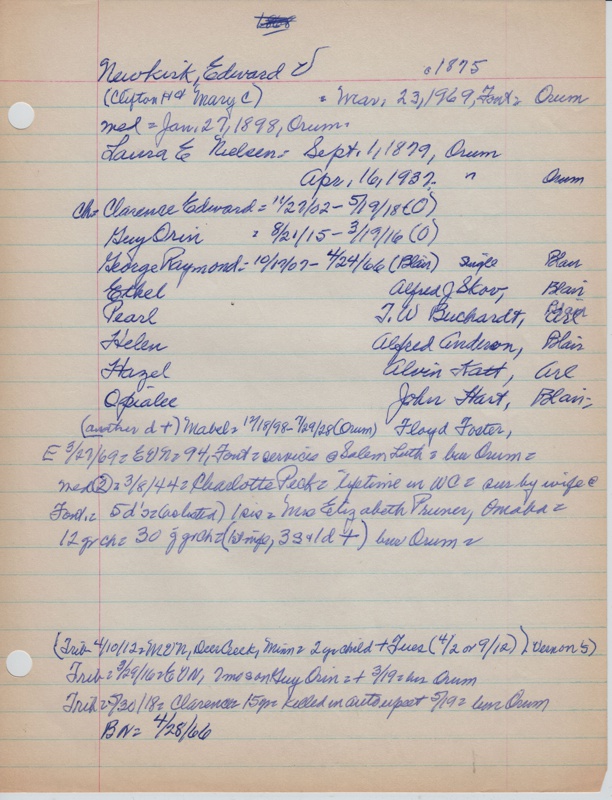 Newkirk, Edward V c1875
(Clifton H & Mary C) = Mar. 23, 1969, Font = Orum
med = Jan. 27, 1898, Orum.
Laura E Nielsen = Sept. 1, 1879, Orum
Apr. 16, 1937 " Orum
ch = Clarence Edward = 11/27/02 - 5/19/18 (O)
Guy Orin = 8/21/15 - 3/19/16 (O)
George Raymond = 10/19/07 - 4/24/66 (Blair) single Blair
Ethel Alfred J Skov, Blair
Pearl T.W Buchardt, Arl
Helen Alfred Anderson, Blair
Hazel Alvin Katt, Arl
Opialee John Hart, Blair =
(another d +) Mabel = 12/18/98 - 7/29/28 (Orum) Floyd Foster,
E 3/27/69 = EVN = 94, Font = services @ Salem Luth = bur Orum =
med (2) = 3/8/44 = Charlotte Peck = lifetime in WC = sur by wife @
Font. = 5 d's = (as listed) 1 sis = Mrs Elizabeth Pruner, Omaha =
12 gr ch = 30 g gr ch = (1st wife, 3 s & 1 d +) bur Orum =
(Trib 4/10/12 = MVN, Deer Creek, Minn = 2 gr child + Tues (4/2 or 9/12) Vernon's)
Trib = 3/29/16 = EVN, 7 mo son Guy Orin = + 3/19 = bur Orum
Trib = 5/30/18 = Clarence 15 yr = killed in auto upset 5/19 = bur Orum
BN = 4/28/66